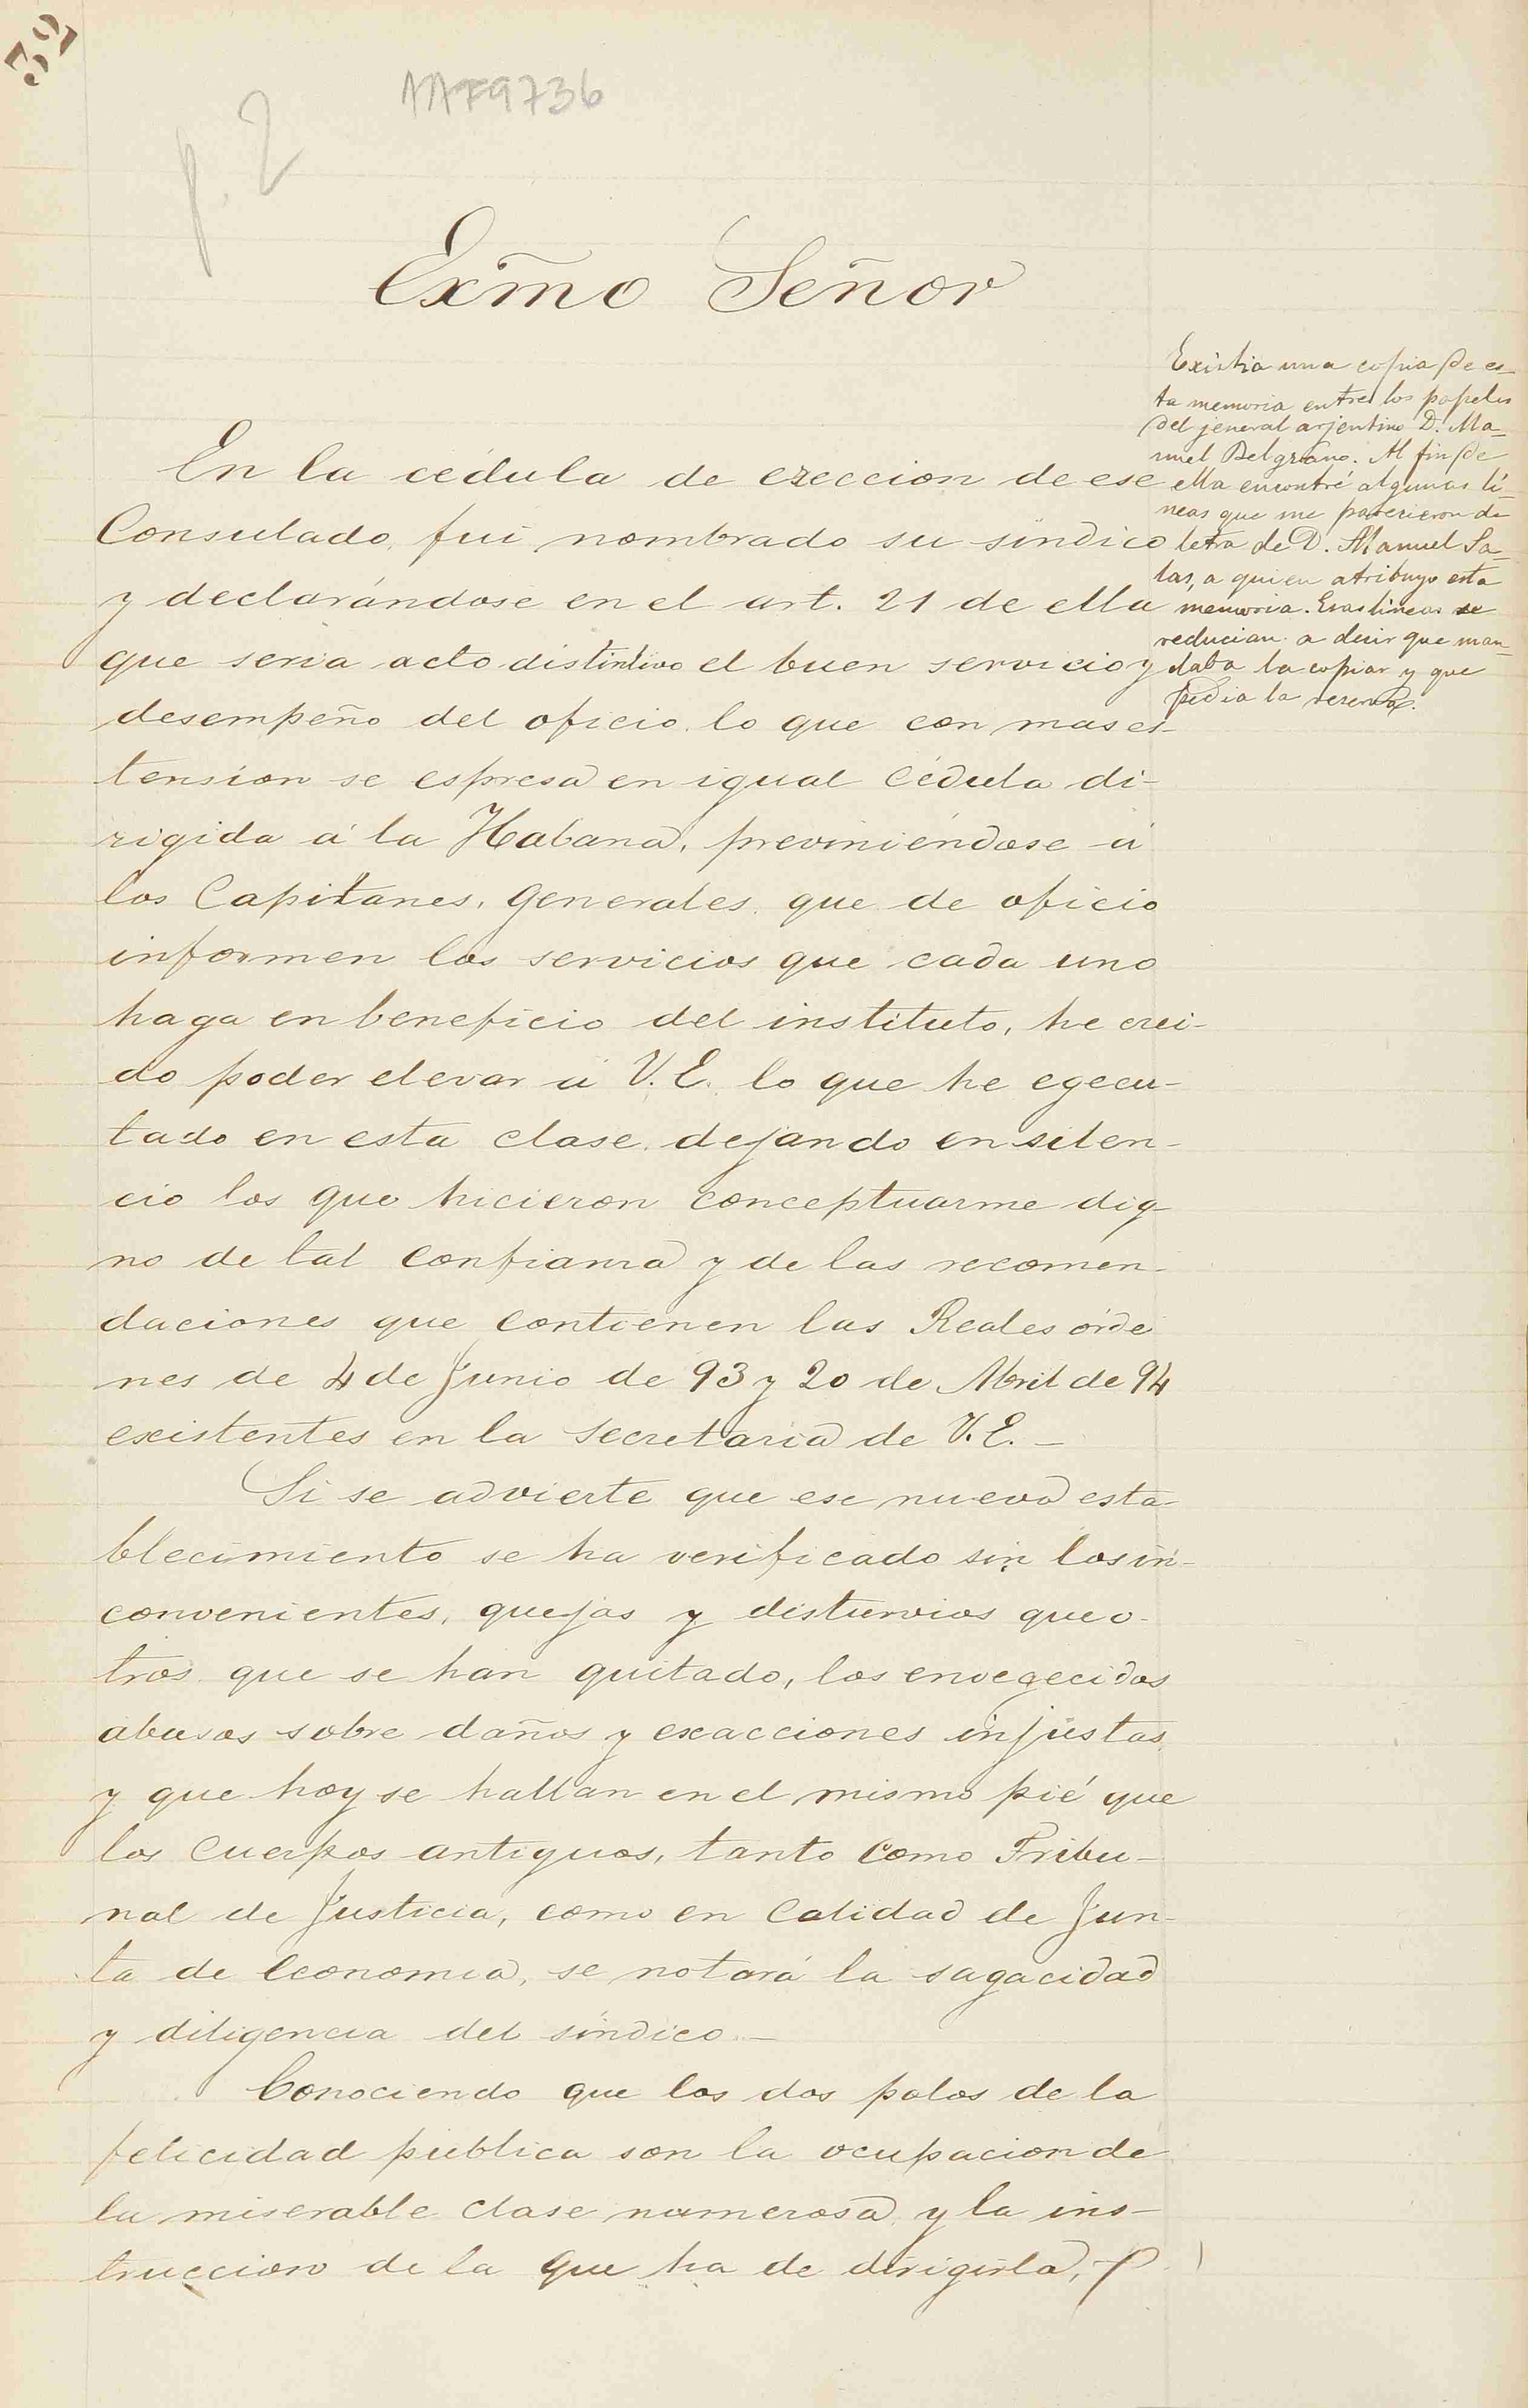 32
AAF9736
p. 2
Exm̃o Señor
En la cédula de ereccion de ese
Consulado, fui nombrado su síndico
y declarándose en el art. 21 de ella
que seria acto distintivo el buen servicio y
desempeño del oficio, lo que con mas es-
tension se espresa en igual Cédula di-
rigida á la Habana, previniéndose á
los Capitanes, Generales, que de oficio
informen los servicios que cada uno
haga en beneficio del instituto, he crei-
do poder elevar á V. E. lo que he egecu-
tado en esta clase, dejando en silen-
cio los que hicieron conceptuarme dig-
no de tal confianza y de las recomen-
daciones que contienen las Reales órde
nes de 4 de Junio de 93 y 20 de Abril de 94
existentes en la Secretaria de V. E. —
Si se advierte que ese nuevo esta-
blecimiento se ha verificado sin los in-
convenientes, quejas y disturvios que o-
tros, que se han quitado, los envegecidos
abusos sobre daños y exacciones injustas,
y que hoy se hallan en el mismo pié que
los Cuerpos antiguos, tanto como Tribu-
nal de Justicia, como en Calidad de Jun-
ta de Economia, se notará la sagacidad
y diligencia del síndico. —
Conociendo que los dos polos de la
felicidad pública son la ocupacion de
la miserable clase numerosa, y la ins-
truccion de la que ha de dirigirla,
Existia una copia de es-
ta memoria entre los papeles
del jeneral arjentino D. Ma-
nuel Belgrano. Al fin de
ella encontré algunas lí-
neas que me parecieron de
letra de D. Manuel Sa-
las, a quien atribuyo esta
memoria. Esas líneas se
reducian a decir que man-
daba la copiar y que
pedia la reserva.